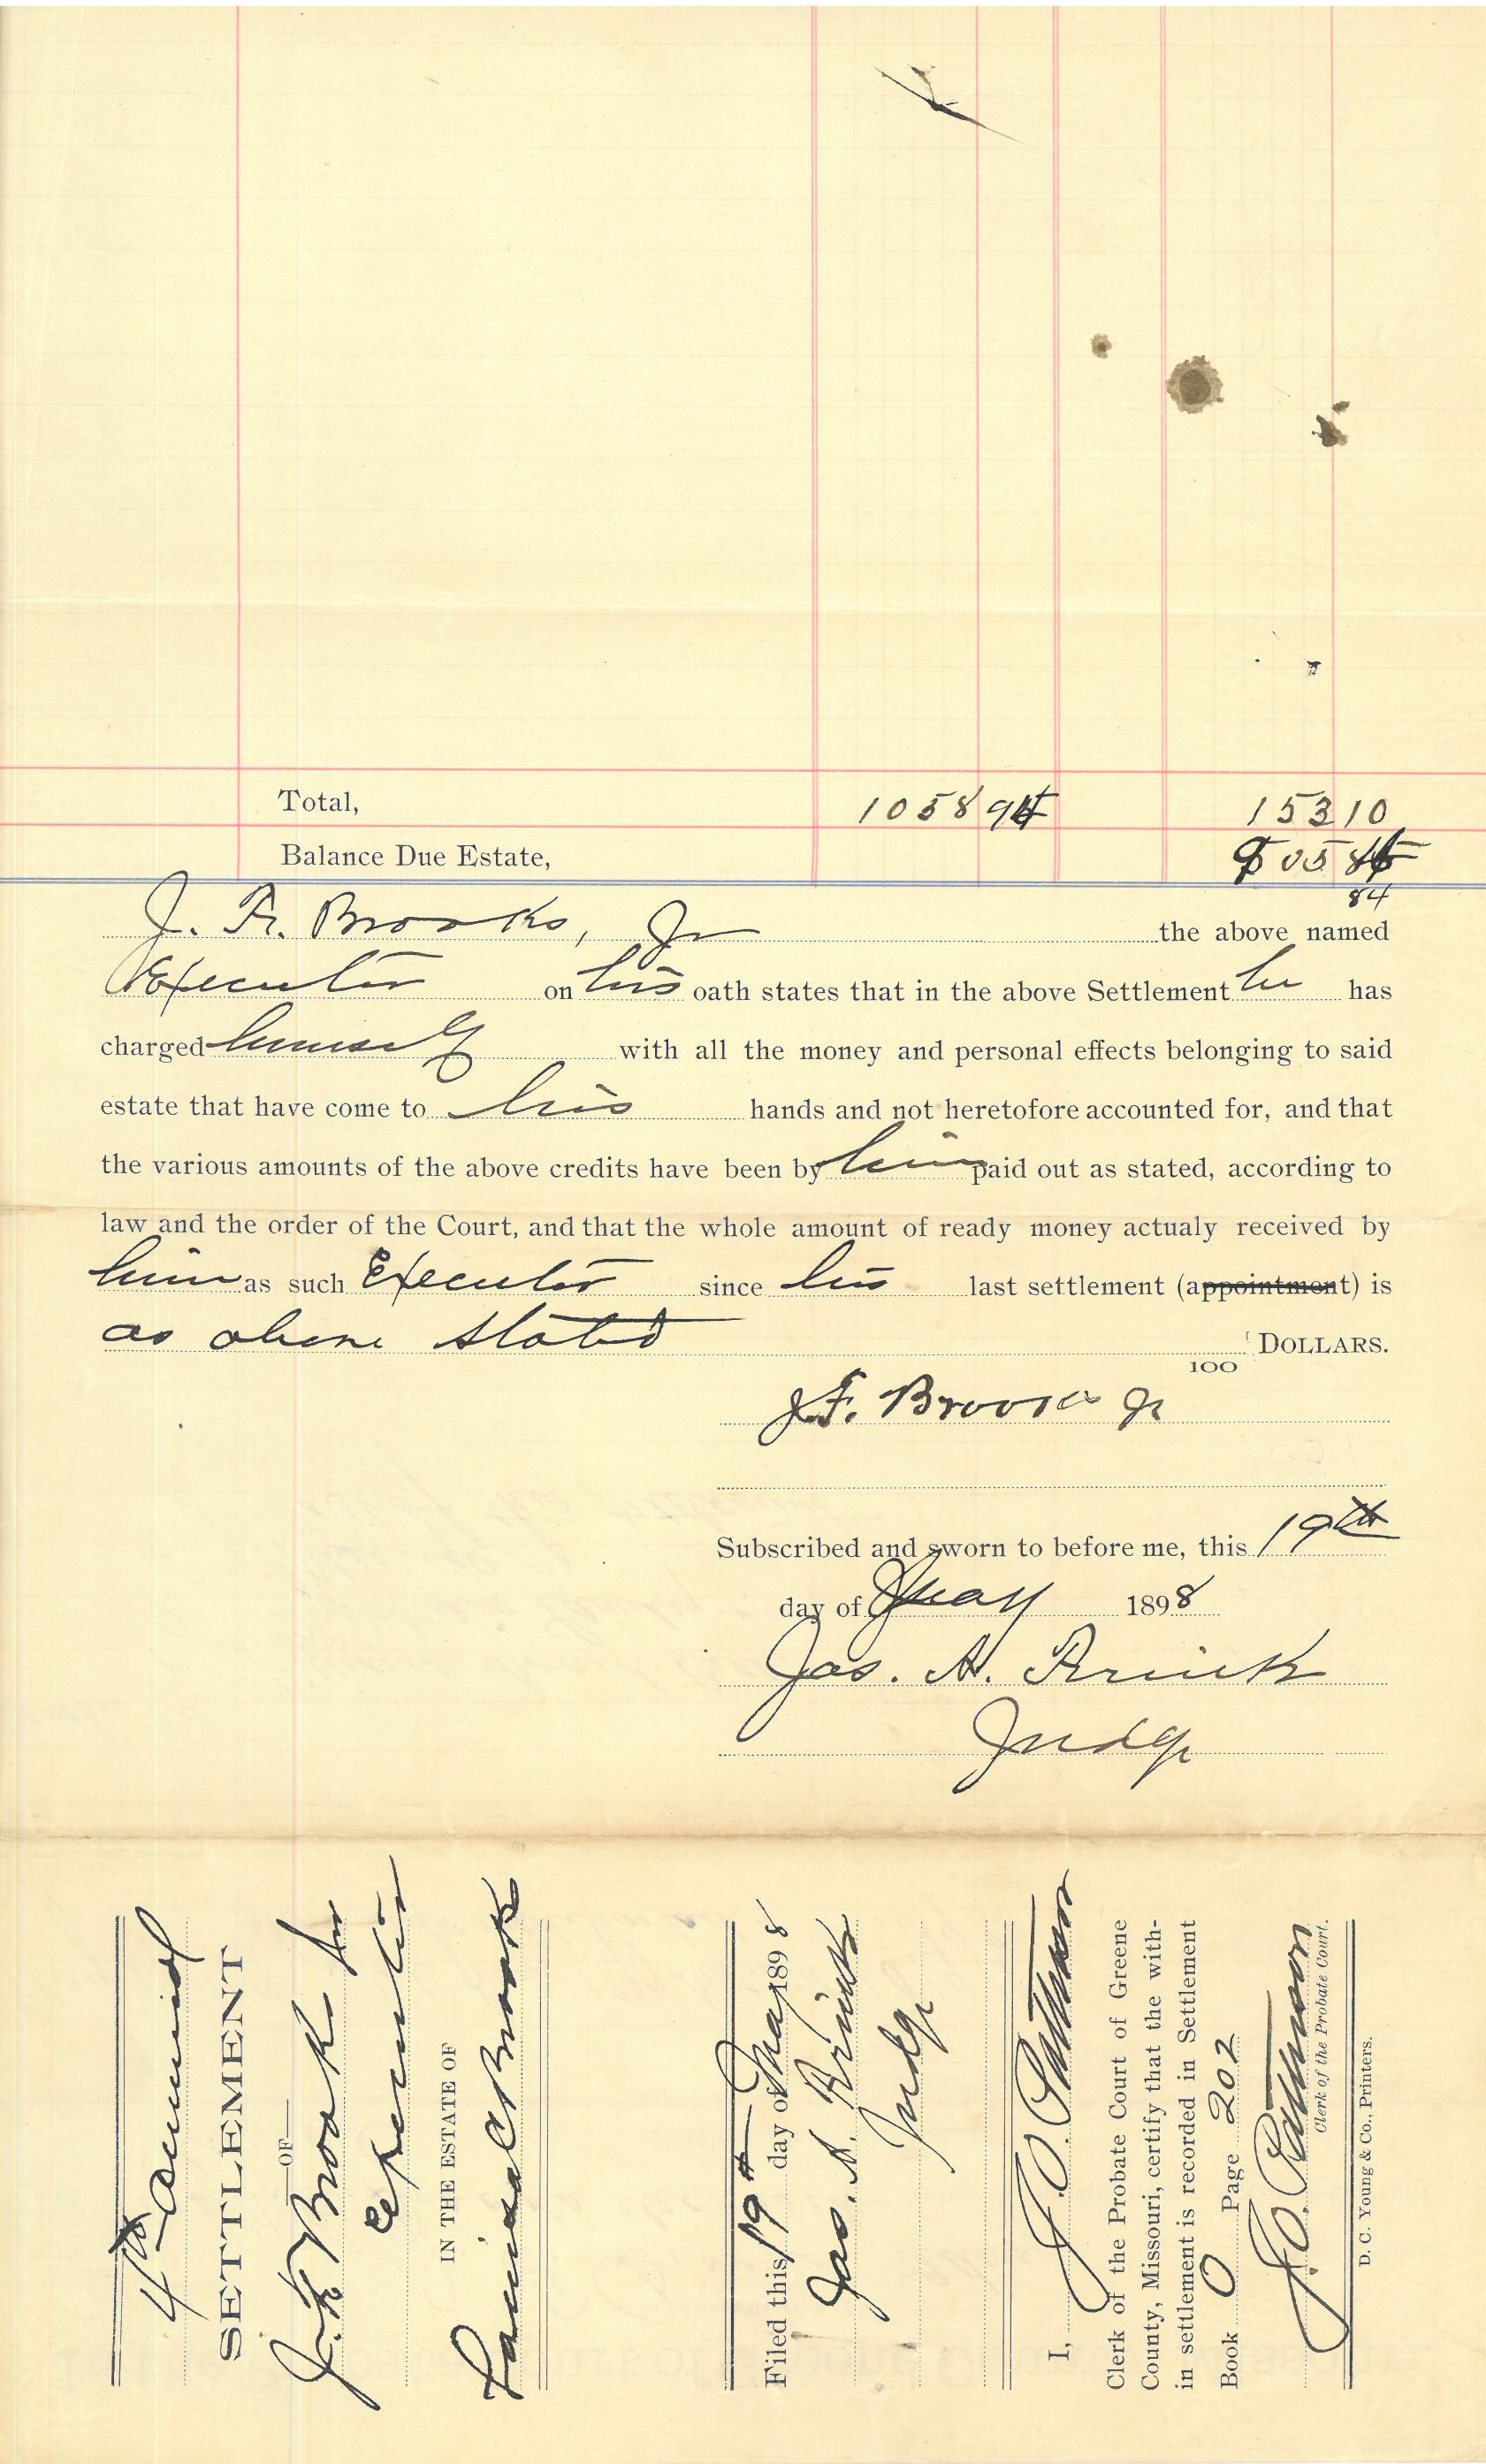 Total, 1058 94 153 10
Balance Due Estate, 905 84
84
J. F. Brooks, Jr the above named
Executor on his oath states that in the above Settlement he has
charged himself with all the money and personal effects belonging to said
estate that have come to his hands and not heretofore accounted for, and that
the various amounts of the above credits have been by him paid out as stated, according to
law and the order of the Court, and that the whole amount of ready money actualy received by
him as such Executor since his last settlement (appointment) is
as above stated
100 DOLLARS.
J.F. Brooks Jr
Subscribed and sworn to before me, this 19th
day of May 1898
Jas. A. Frink
Judge
4th Annual
SETTLEMENT
OF
J. F. Brooks Jr
Executor
IN THE ESTATE OF
Brooks
Filed this 19th day of May 1898
Jas. A. Frink
Judge
I, J. O. Patterson
Clerk of the Probate Court of Greene
County, Missouri, certify that the with-
in settlement is recorded in Settlement
Book O Page 202
J. O. Patterson
Clerk of the Probate Court.
D. C. Young & Co., Printers.